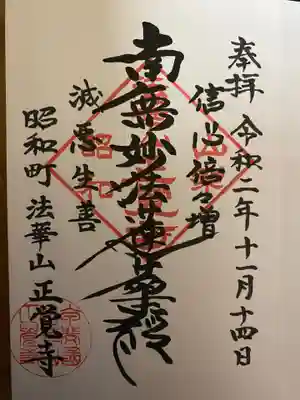 奉拝 令和二年十一月十四日
信心倍々増
南無妙法蓮華経
滅悪生善
昭和町 法華山 正覚寺